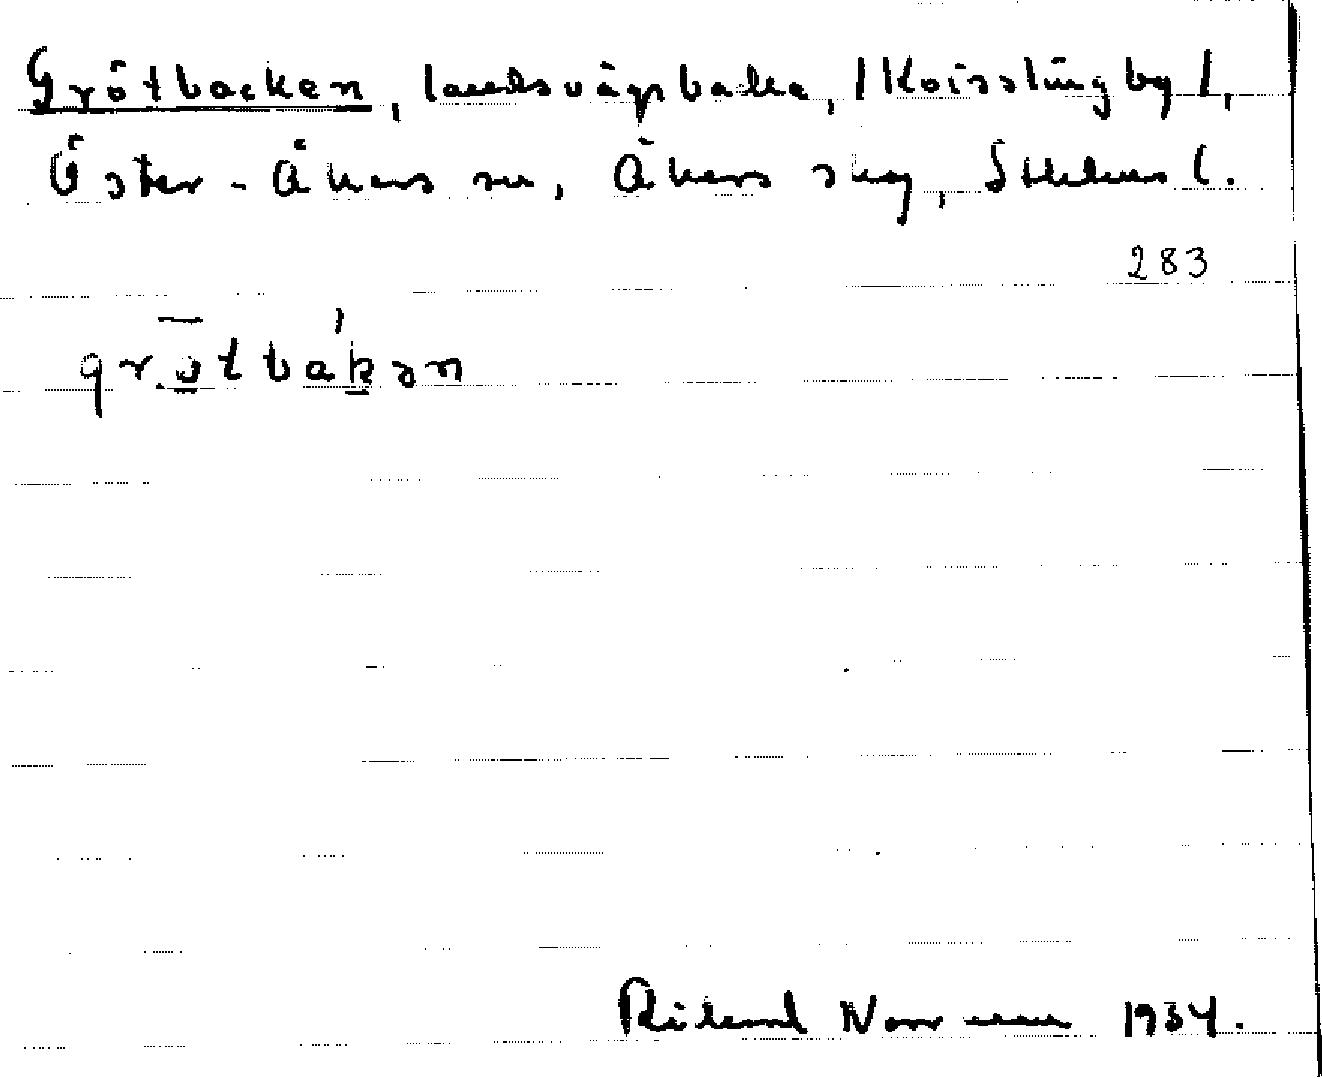 Grötbacken, landsvägsbacke, /Roslingby/,
Öster-Åkers sn, Åkers skg, Sthlms l.
283
grōtbakən
Rikard Norrman 1934.